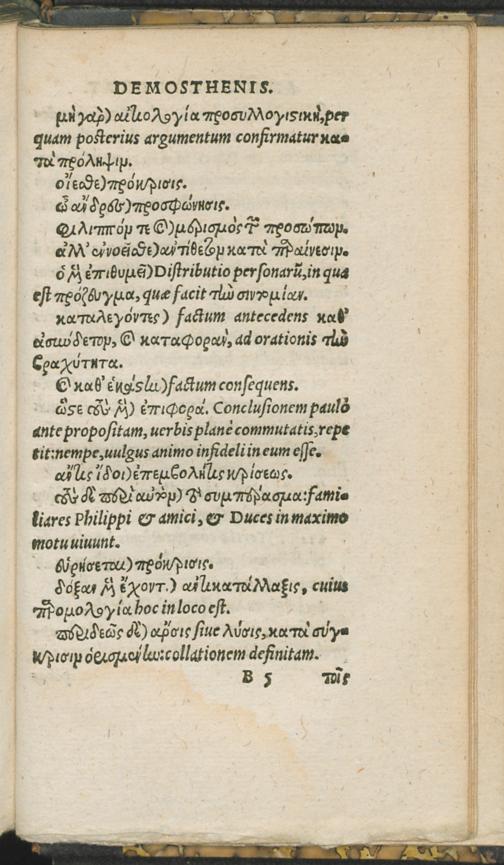 DEMOSTHENIS.
μὴ γαρ) αἰτιολογία προσυλλογιστικὴ, per
quam posterius argumentum confirmatur κα-
τὰ πρόληψιμ.
οἴεσθε) πρόκρισις.
ὦ ἄνδρες) προσφώνησις.
Φιλιππόμ τε καὶ) μερισμὸς τῶν προσώπωμ.
ἀλλ' ἀννοεῖσθε) ἀντίθεσιμ κατὰ παραίνεσιμ.
ὁ μὲν ἐπιθυμεῖ) Distributio personarũ, in qua
est πρόζευγμα, quæ facit τὴν συντομίαν.
καταλεγόντες) factum antecedens καθ'
ἀσύνδετομ, καὶ καταφορὰν, ad orationis τὴν
βραχύτητα.
καὶ καθ' ἑκάστην) factum consequens.
ὥστε μὲν) ἐπιφορά. Conclusionem paulò
ante propositam, uerbis planè commutatis, repe
tit: nempe, uulgus animo infideli in eum esse.
ἄν τις ἴδοι) ἐπεμβολὴ τῆς κρίσεως.
δὲ περὶ αὐτὸμ) συμπέρασμα: fami-
liares Philippi & amici, & Duces in maximo
motu uiuunt.
εὑρήσεται) πρόκρισις.
δόξαν μὲν ἔχοντ.) ἀντικατάλλαξις, cuius
παρομολογία hoc in loco est.
περιδεῶς δὲ) ἄρσις siue λύσις, κατὰ σύγ-
κρισιμ ὁρισμένην: collationem definitam.
B 5 τοῖς